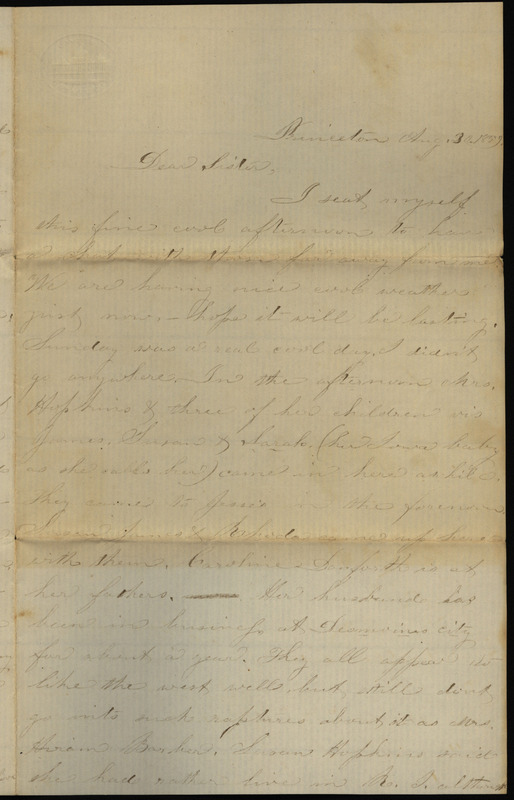 Princeton Aug. 30. 1859.
Dear Sister,
I seat myself
this fine cool afternoon to have
a chat with
We are having nice cool weather
just now, - hope it will be lasting.
Sunday was a real cool day. I didn't
go anywhere. In the afternoon Mrs.
Hopkins & three of her children viz
James, Susan & Sarah (her Iowa baby
as she calls her) came in here awhile.
they came to Jesse's in the forenoon
& Rhoda came up here
with them. Caroline Danforth is at
her fathers. Her husband has
been in business at city
for about a year. They all appear to
like the west well, but still don't
go into such raptures about it as Mrs.
Hiram Barber. Susan Hopkins said
she had rather live in